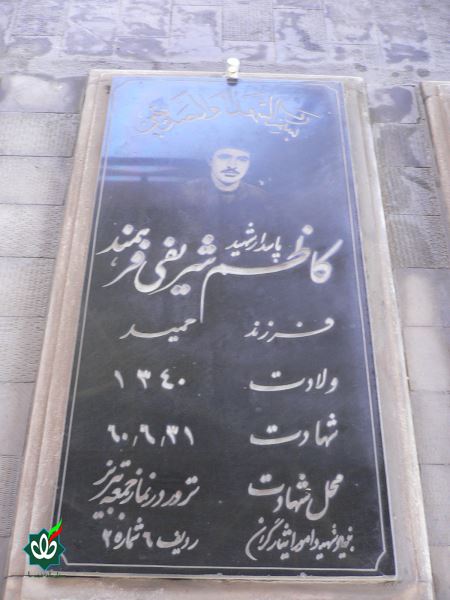 پاسدار شهید
کاظم شریفی فرهمند
فرزند حمید
ولادت ۱۳۴۰
شهادت ۶۰/۶/۳۱
محل شهادت ترور در نماز جمعه تبریز
بنیاد شهید و امور ایثارگران ردیف ۶ شماره ۲